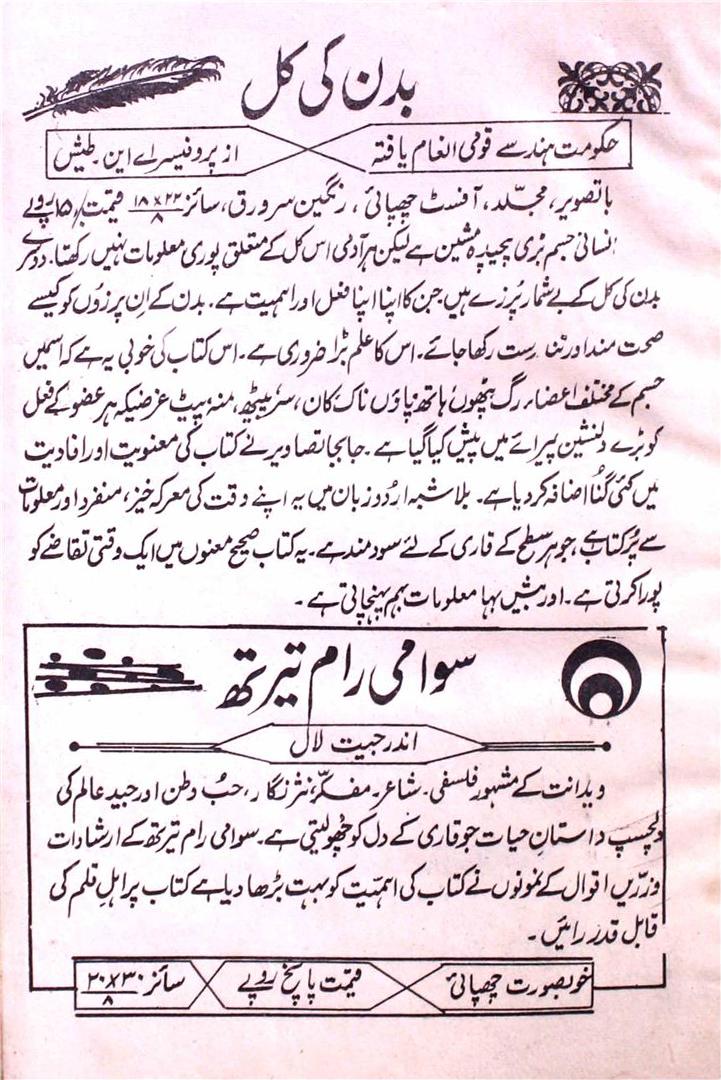 بدن کی کل
حکومت ہند سے قومی انعام یافتہ
از پروفیسر اے این۔ طیش
باتصویر، مجلّد، آفسٹ چھپائی، رنگین سرورق، سائز ۲۲×۱۸/۸ قیمت ۱۵ روپے
انسانی جسم بڑی پیچیدہ مشین ہے لیکن ہر آدمی اس کل کے متعلق پوری معلومات نہیں رکھتا۔ دوسرے
بدن کی کل کے بے شمار پُرزے ہیں جن کا اپنا اپنا فعل اور اہمیت ہے۔ بدن کے اِن پرزوں کو کیسے
صحت مند اور تندرست رکھا جائے۔ اس کا علم بڑا ضروری ہے۔ اس کتاب کی خوبی یہ ہے کہ اسمیں
جسم کے مختلف اعضاء رگ پٹھوں، ہاتھ پاؤں ناک کان، سر، پیٹھ، منہ پیٹ غرضیکہ ہر عضو کے فعل
کو بڑے دلنشین پیرائے میں پیش کیا گیا ہے۔ جابجا تصاویر نے کتاب کی معنویت اور افادیت
میں کئی گُنا اضافہ کر دیا ہے۔ بلاشبہ اُردو زبان میں یہ اپنے وقت کی معرکہ خیز، منفرد اور معلومات
سے پُر کتاب ہے، جو ہر سطح کے قاری کے لئے سود مند ہے۔ یہ کتاب صحیح معنوں میں ایک وقتی تقاضے کو
پورا کرتی ہے۔ اور بیش بہا معلومات بہم پہنچاتی ہے۔
سوامی رام تیرتھ
اندر جیت لال
ویدانت کے مشہور فلسفی۔ شاعر۔ مفکّر، نثر نگار، حبُ وطن اور جید عالم کی
دلچسپ داستانِ حیات جو قاری کے دل کو چھو لیتی ہے۔ سوامی رام تیرتھ کے ارشادات
و زرّیں اقوال کے نمونوں نے کتاب کی اہمیّت کو بہت بڑھا دیا ہے کتاب پر اہلِ قلم کی
قابل قدر رائیں۔
خوبصورت چھپائی
قیمت پانچ روپے
سائز ۳۰×۲۰/۸